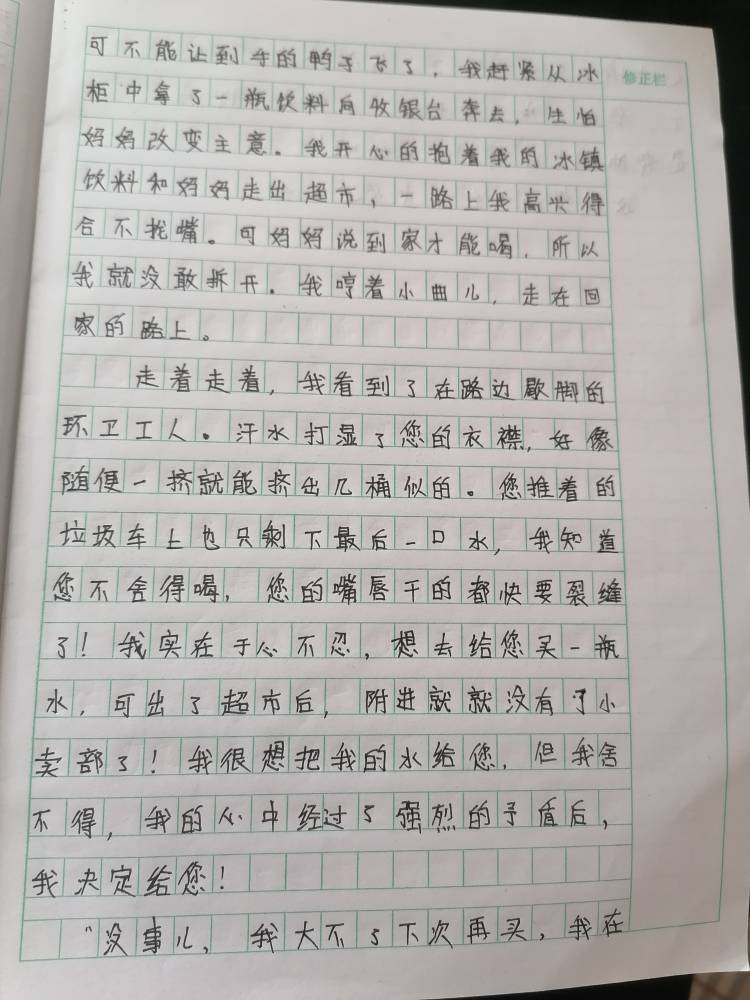 可不能让到手的鸭子飞了，我赶紧从冰
修正栏
柜中拿了一瓶饮料向收银台奔去，生怕
妈妈改变主意。我开心的抱着我的冰镇
饮料和妈妈走出超市，一路上我高兴得
合不拢嘴。可妈妈说到家才能喝，所以
我就没敢拆开。我哼着小曲儿，走在回
家的路上。
走着走着，我看到了在路边歇脚的
环卫工人。汗水打湿了您的衣襟，好像
随便一挤就能挤出几桶似的。您推着的
垃圾车上也只剩下最后一口水，我知道
您不舍得喝，您的嘴唇干的都快要裂缝
了！我实在于心不忍，想去给您买一瓶
水，可出了超市后，附进就就没有了小
卖部了！我很想把我的水给您，但我舍
不得，我的心中经过了强烈的予盾后，
我决定给您！
“没事儿，我大不了下次再买，我在